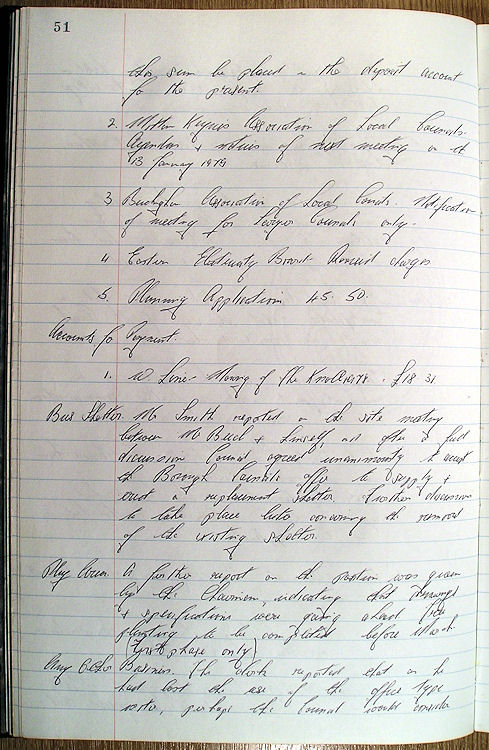 51
this sum be placed in the deposit account
for the present.
2. Milton Keynes Association of Local Councils.
Agendas + notices of next meeting on the
13 January 1979
3 Association of Local Councils. Notification
of meeting for larger Councils only.
4 Eastern Electricity Board. Revised charges
5. Planning Applications 45. 50.
Accounts for Payment.
1. W Lines Mowing of the Knoll 1978. £18 31
Bus Shelter. Mr Smith reported on the site meeting
between Mr Bull + himself, and after a full
discussion Council agreed unanimously to accept
the Borough Councils offer to supply +
erect a replacement shelter. Further discussion
to take place later concerning the removal
of the existing shelter.
Play Area. A further report on the position was given
by the Chairman, indicating that drawings
+ specifications were going ahead for
planting to be completed before March
(first phase only)
Any Other Business. The Clerk reported that as he
had lost the use of the office type
writer, perhaps the Council would consider